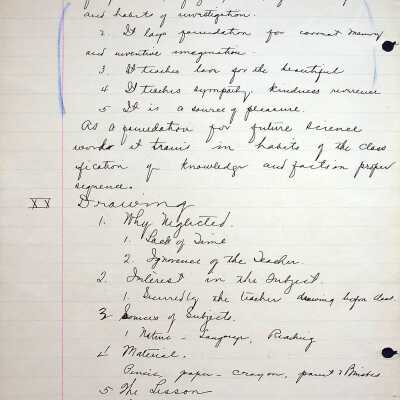 and habits of investigation.
2. It lays foundation for correct memory
and inventive imagination.
3. It teaches love for the beautiful
4 It teaches sympathy, kindness reverence
5 It is a source of pleasure.
As a foundation for future science
work it trains in habits of the class
ification of knowledge and facts in proper
sequence.
XX Drawing
1. Why Neglected.
1. Lack of Time
2. Ignorence of the Teacher.
2. Interest in the Subject.
1. Secured by the teacher drawing before class.
3 Sources of Subjects.
1 Nature - Language, Reading
4 Material.
Pencis, paper - crayon, paint & Brushes
5 The Lesson